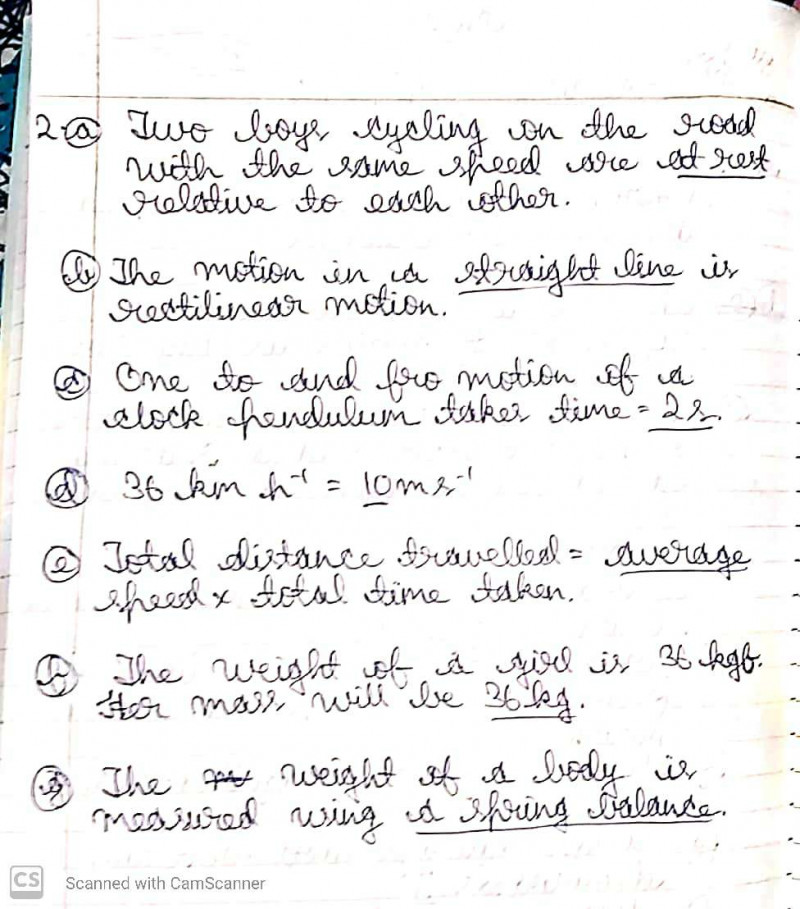 2. (a) Two boys cycling on the road
with the same speed are at rest
relative to each other.
(b) The motion in a straight line is
rectilinear motion.
(c) One to and fro motion of a
clock pendulum takes time = 2s.
(d) 36 km h⁻¹ = 10 m s⁻¹
(e) Total distance travelled = average
speed x total time taken.
(f) The weight of a girl is 36 kgf.
Her mass will be 36 kg.
(g) The weight of a body is
measured using a spring balance.
CS Scanned with CamScanner